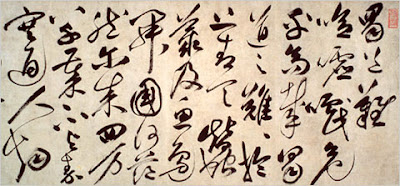 蜀道難
噫吁嚱危
乎高哉蜀
道之難於
上青天蠶
叢及魚鳧
開國何茫
然尔来四万
八千歲不与秦
塞通人烟